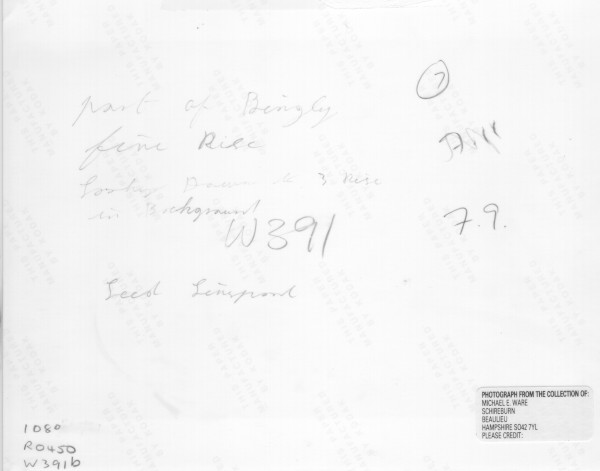 7
part of Bingly
five Rise
Looking Down to 3 Rise
in Background
W391
7.9.
Leed Liverpool
PHOTOGRAPH FROM THE COLLECTION OF:
MICHAEL E. WARE
SCHIREBURN
BEAULIEU
HAMPSHIRE SO42 7YL
PLEASE CREDIT:
1080
R0450
W391b